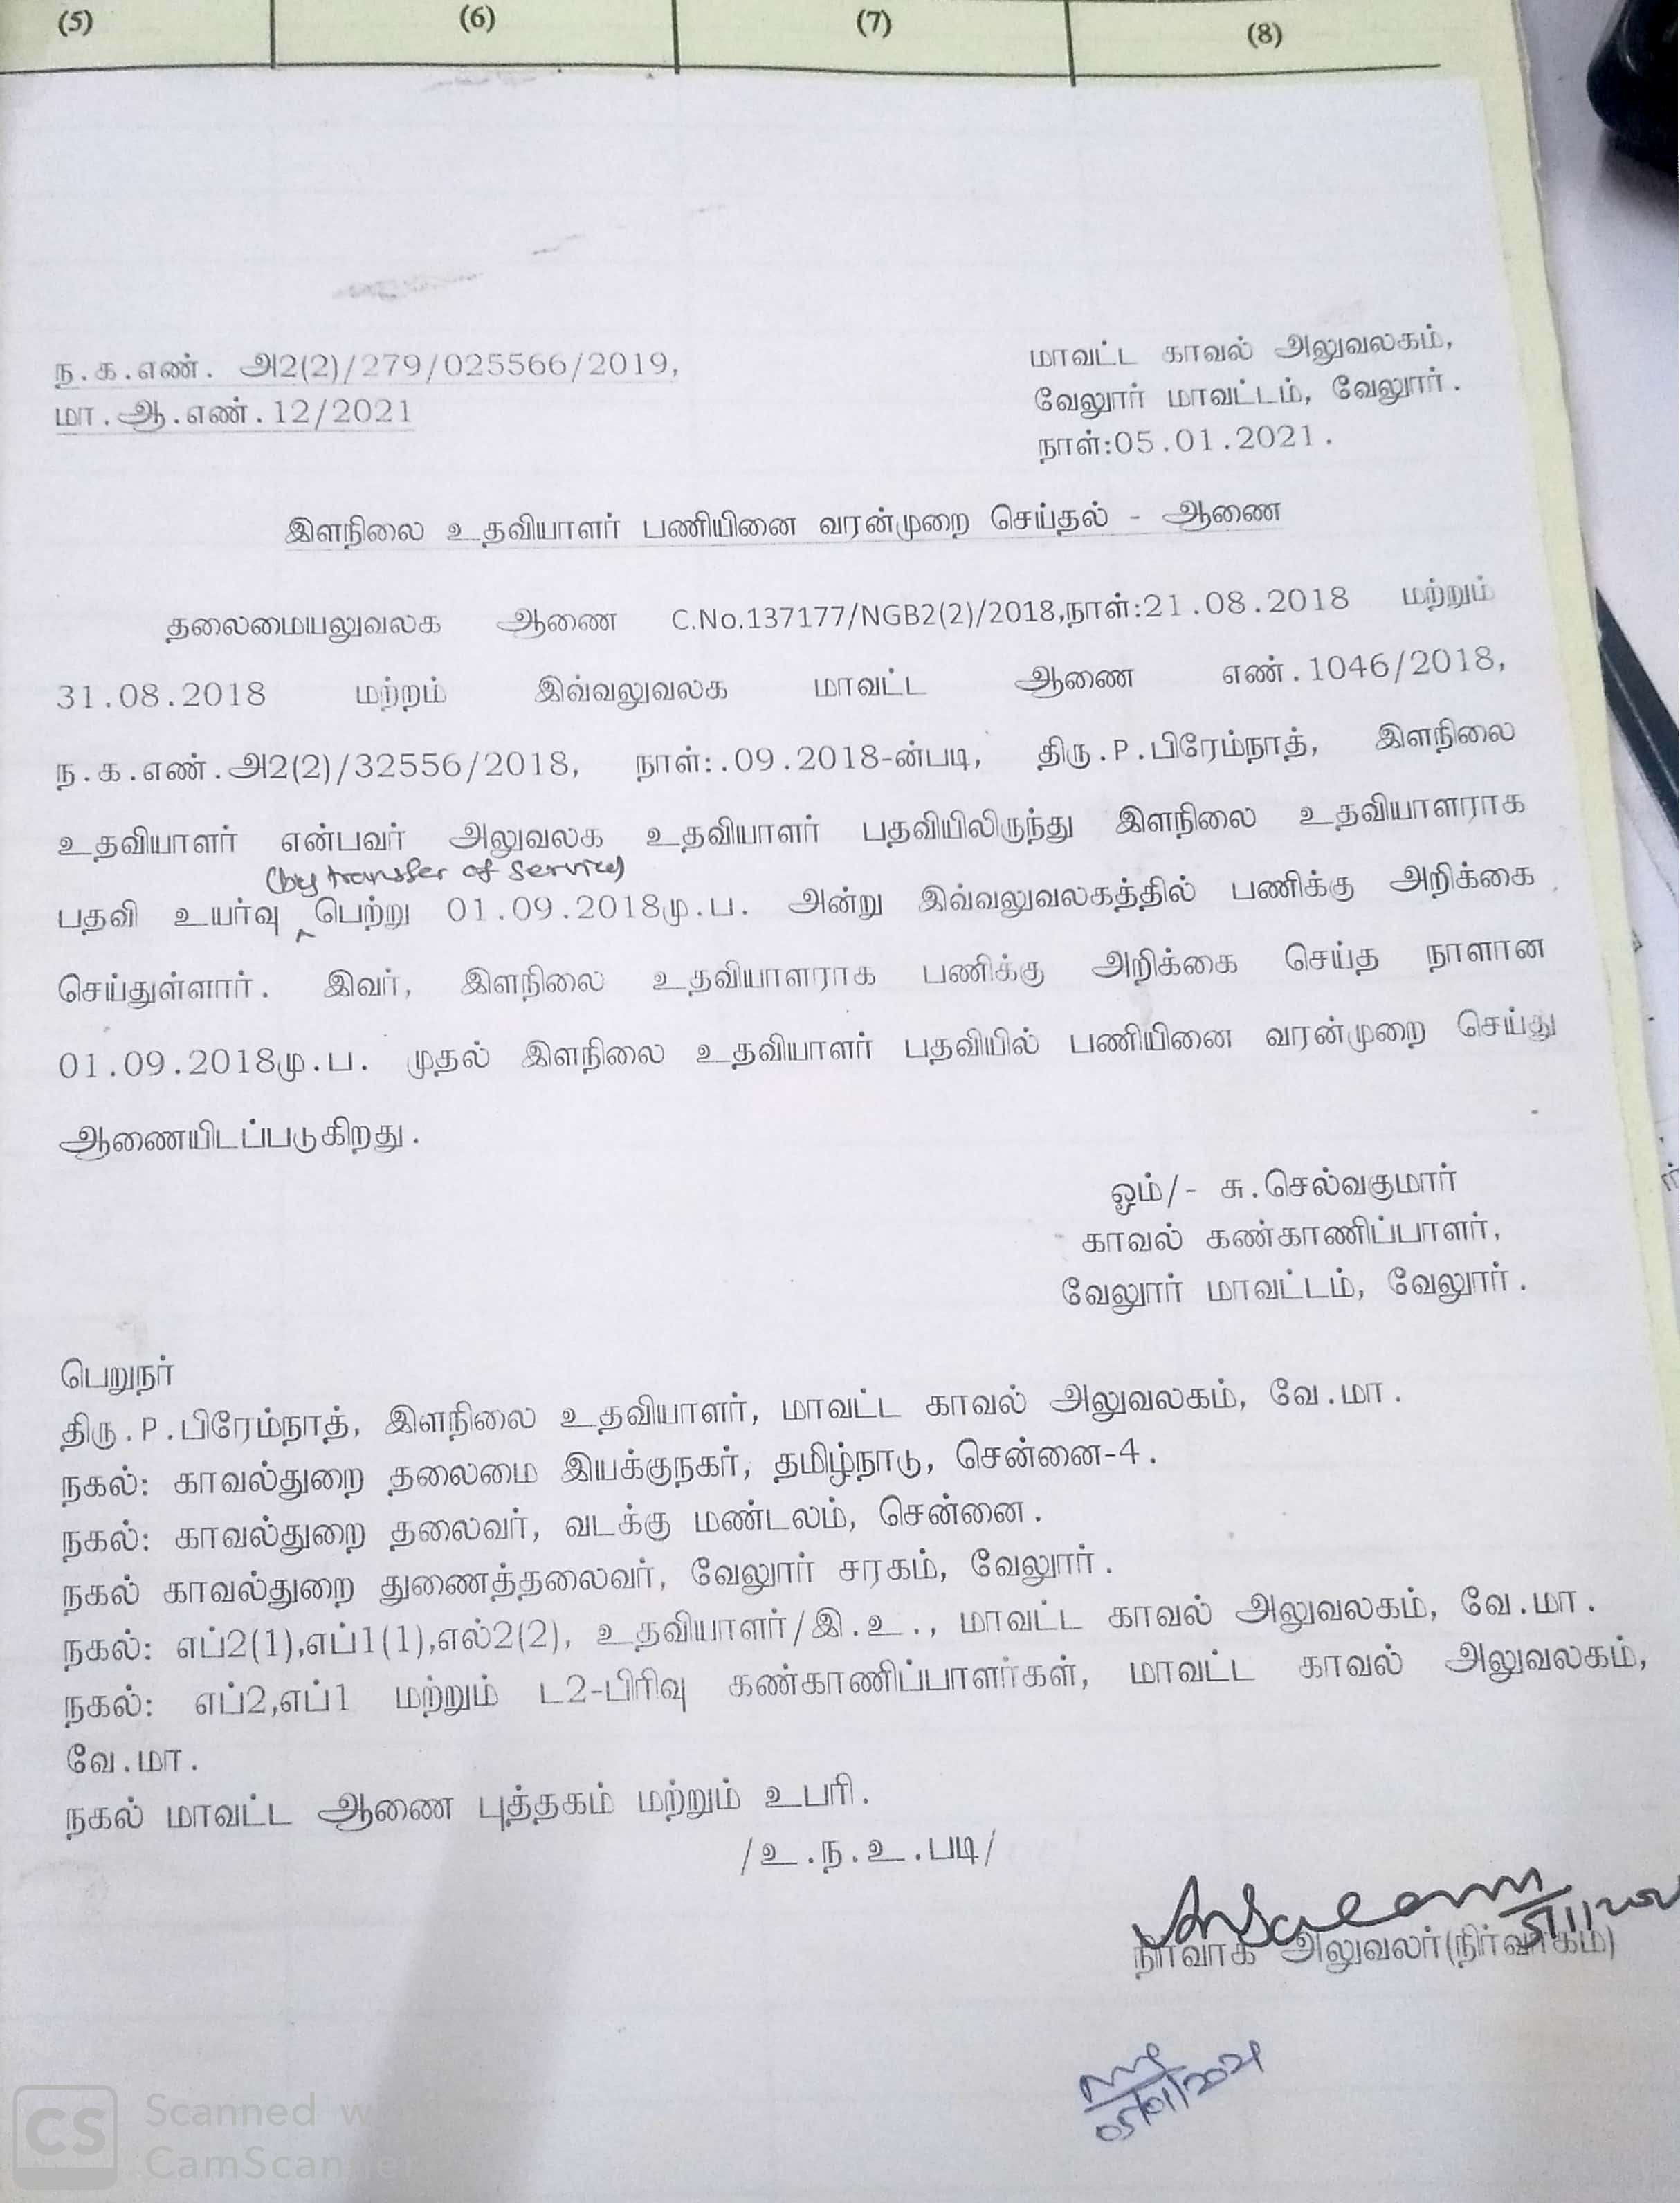 (5) (6) (7) (8)
ந.க.எண். அ2(2)/279/025566/2019,
மா.ஆ.எண்.12/2021
மாவட்ட காவல் அலுவலகம்,
வேலூர் மாவட்டம், வேலூர்.
நாள்:05.01.2021.
இளநிலை உதவியாளர் பணியினை வரன்முறை செய்தல் - ஆணை
தலைமையலுவலக ஆணை C.No.137177/NGB2(2)/2018,நாள்:21.08.2018 மற்றும்
31.08.2018 மற்றம் இவ்வலுவலக மாவட்ட ஆணை எண்.1046/2018,
ந.க.எண்.அ2(2)/32556/2018, நாள்:.09.2018-ன்படி, திரு.P.பிரேம்நாத், இளநிலை
உதவியாளர் என்பவர் அலுவலக உதவியாளர் பதவியிலிருந்து இளநிலை உதவியாளராக
(by transfer of service)
பதவி உயர்வு பெற்று 01.09.2018மு.ப. அன்று இவ்வலுவலகத்தில் பணிக்கு அறிக்கை
செய்துள்ளார். இவர், இளநிலை உதவியாளராக பணிக்கு அறிக்கை செய்த நாளான
01.09.2018மு.ப. முதல் இளநிலை உதவியாளர் பதவியில் பணியினை வரன்முறை செய்து
ஆணையிடப்படுகிறது.
ஓம்/- சு.செல்வகுமார்
காவல் கண்காணிப்பாளர்,
வேலூர் மாவட்டம், வேலூர்.
பெறுநர்
திரு.P.பிரேம்நாத், இளநிலை உதவியாளர், மாவட்ட காவல் அலுவலகம், வே.மா.
நகல்: காவல்துறை தலைமை இயக்குநகர், தமிழ்நாடு, சென்னை-4.
நகல்: காவல்துறை தலைவர், வடக்கு மண்டலம், சென்னை.
நகல் காவல்துறை துணைத்தலைவர், வேலூர் சரகம், வேலூர்.
நகல்: எப்2(1),எப்1(1),எல்2(2), உதவியாளர்/இ.உ., மாவட்ட காவல் அலுவலகம், வே.மா.
நகல்: எப்2,எப்1 மற்றும் ட2-பிரிவு கண்காணிப்பாளர்கள், மாவட்ட காவல் அலுவலகம்,
வே.மா.
நகல் மாவட்ட ஆணை புத்தகம் மற்றும் உபரி.
/உ.ந.உ.படி/
நிர்வாக அலுவலர்(நிர்வாகம்)
05/01/2021
CS Scanned w
CamScanner